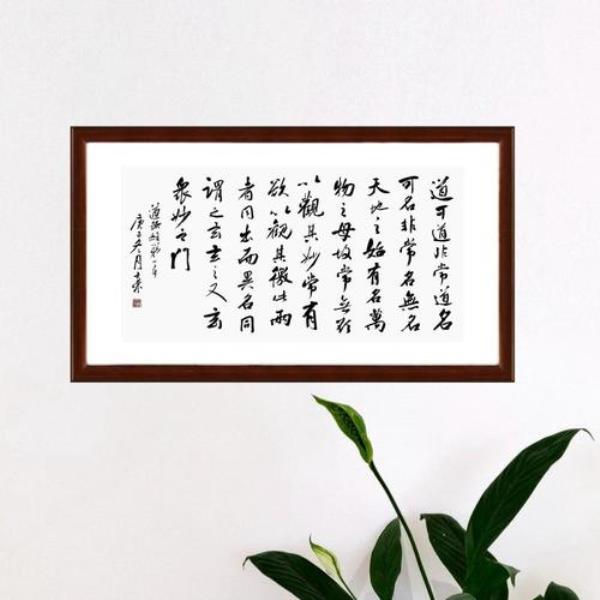 道可道非常道名
可名非常名無名
天地之始有名萬
物之母故常無欲
以觀其妙常有
欲以觀其徼此兩
者同出而異名同
謂之玄玄之又玄
衆妙之門
道德經第一章
庚子冬月